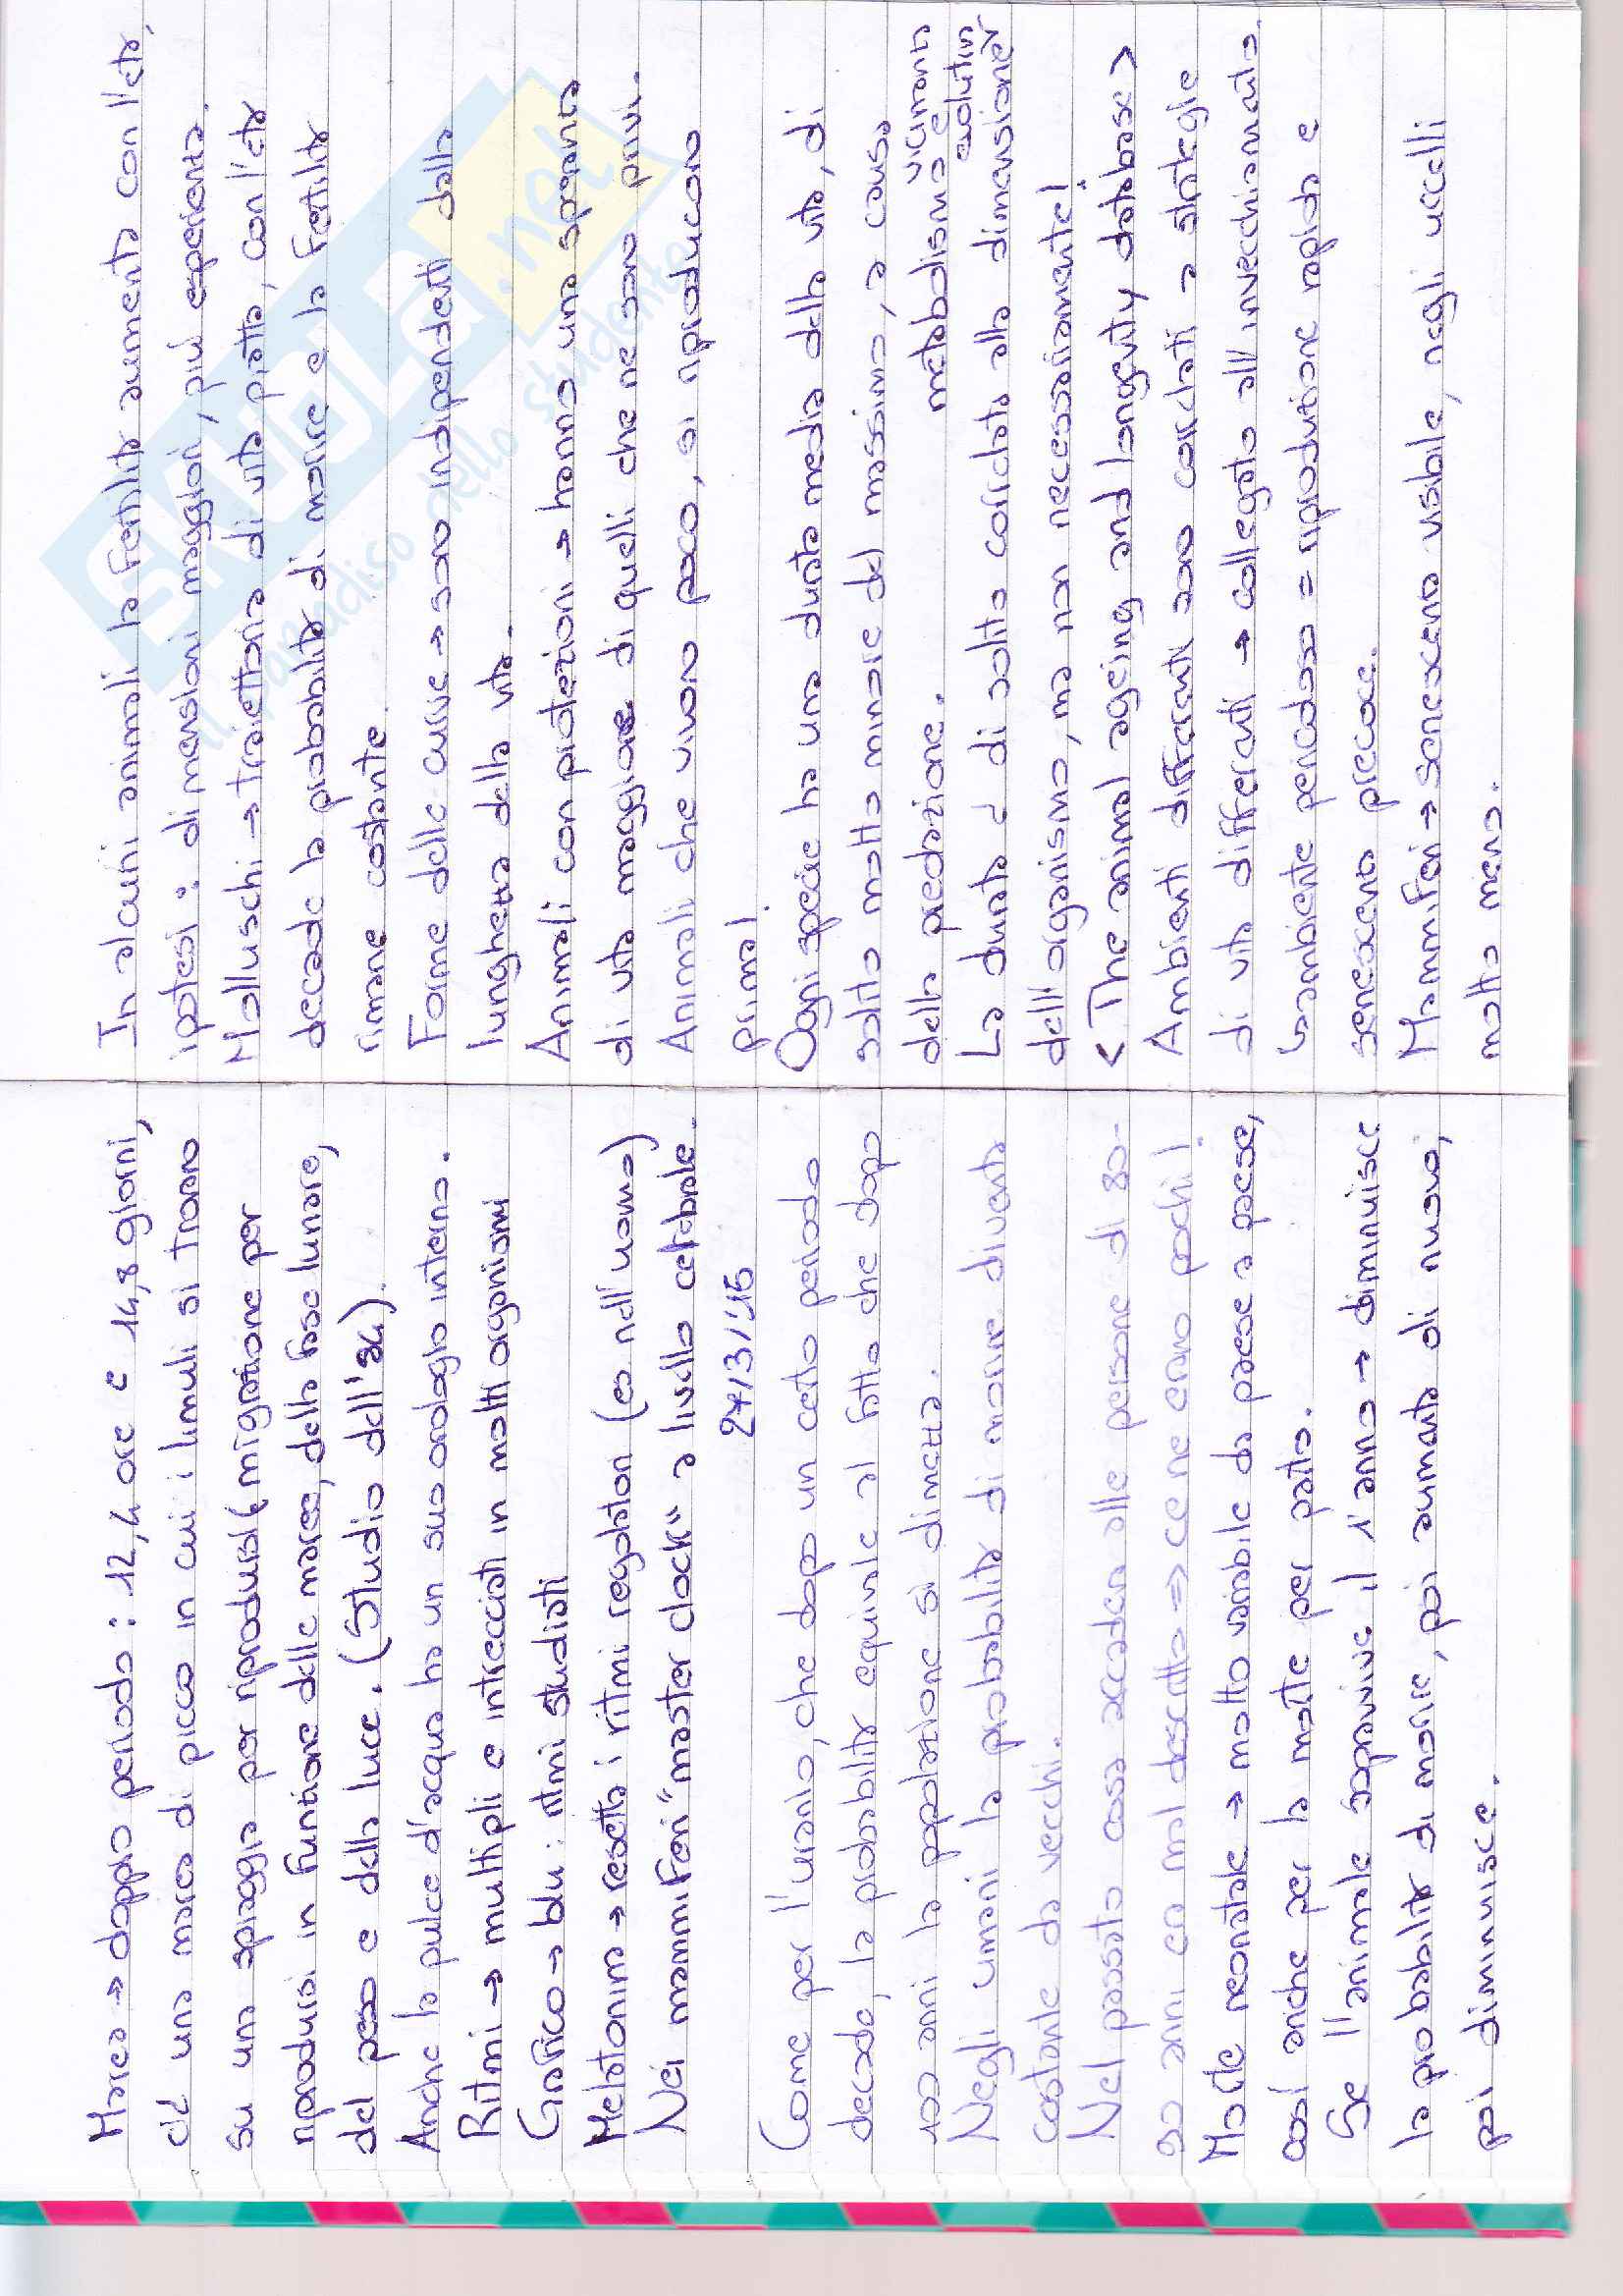 Marea → doppio periodo : 12,4 ore e 14,8 giorni,
c'è una marea di picco in cui i limuli si trovano
su una spiaggia per riprodursi (migrazione per
riprodursi in funzione delle maree, della fase lunare,
del peso e della luce. (Studio dell'84).
Anche la pulce d'acqua ha un suo orologio interno.
Ritmi → multipli e intrecciati in molti organismi
Grafico → blu: ritmi studiati
Melatonina → resetta i ritmi regolatori (es nell'uomo)
Nei mammiferi "master clock" a livello cerebrale.
27/3/'15
Come per l'uranio, che dopo un certo periodo
decade, la probabilità equivale al fatto che dopo
100 anni la popolazione si dimezza.
Negli umani la probabilità di morire diventa
costante da vecchi.
Nel passato cosa accadeva alle persone di 80-
90 anni era mal descritto => ce ne erano pochi!
Morte neonatale → molto variabile da paese a paese,
così anche per la morte per parto.
Se l'animale sopravvive il 1° anno → diminuisce
la probabilità di morire, poi aumenta di nuovo,
poi diminuisce.
In alcuni animali la fertilità aumenta con l'età,
ipotesi: dimensioni maggiori, più esperienza.
Molluschi → traiettoria di vita piatta, con l'età
decade la probabilità di morire e la fertilità
rimane costante.
Forme delle curve → sono indipendenti dalla
lunghezza della vita.
Animali con protezioni → hanno una speranza
di vita maggiore di quelli che ne sono privi.
Animali che vivono poco, si riproducono
prima!
Ogni specie ha una durata media della vita, di
solito molto minore del massimo, a causa
della predazione.
metabolismo e vicinanza evolutiva
La durata è di solito correlata alla dimensione
dell'organismo, ma non necessariamente!
< The animal ageing and longevity database >
Ambienti differenti sono correlati a strategie
di vita differenti → collegato all'invecchiamento.
ambiente pericoloso = riproduzione rapida e
senescenza precoce.
Mammiferi → senescenza visibile, negli uccelli
molto meno.
SKUOLA.net
il paradiso dello studente